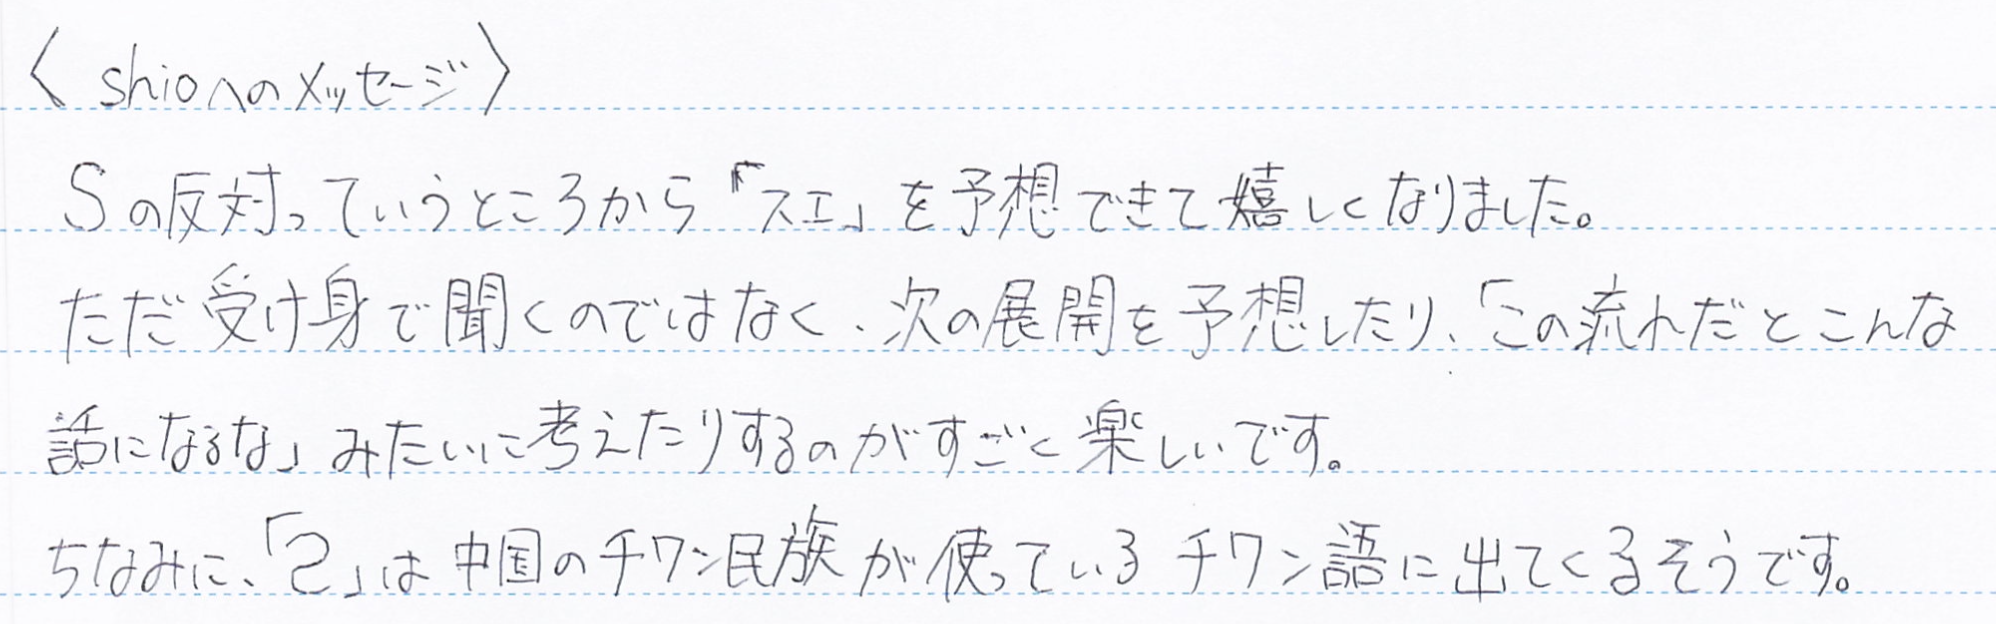 〈shioへのメッセージ〉
Sの反対っていうところから「スエ」を予想できて嬉しくなりました。
ただ受け身で聞くのではなく、次の展開を予想したり、「この流れだとこんな
話になるな」みたいに考えたりするのがすごく楽しいです。
ちなみに、「Ƨ」は中国のチワン民族が使っているチワン語に出てくるそうです。